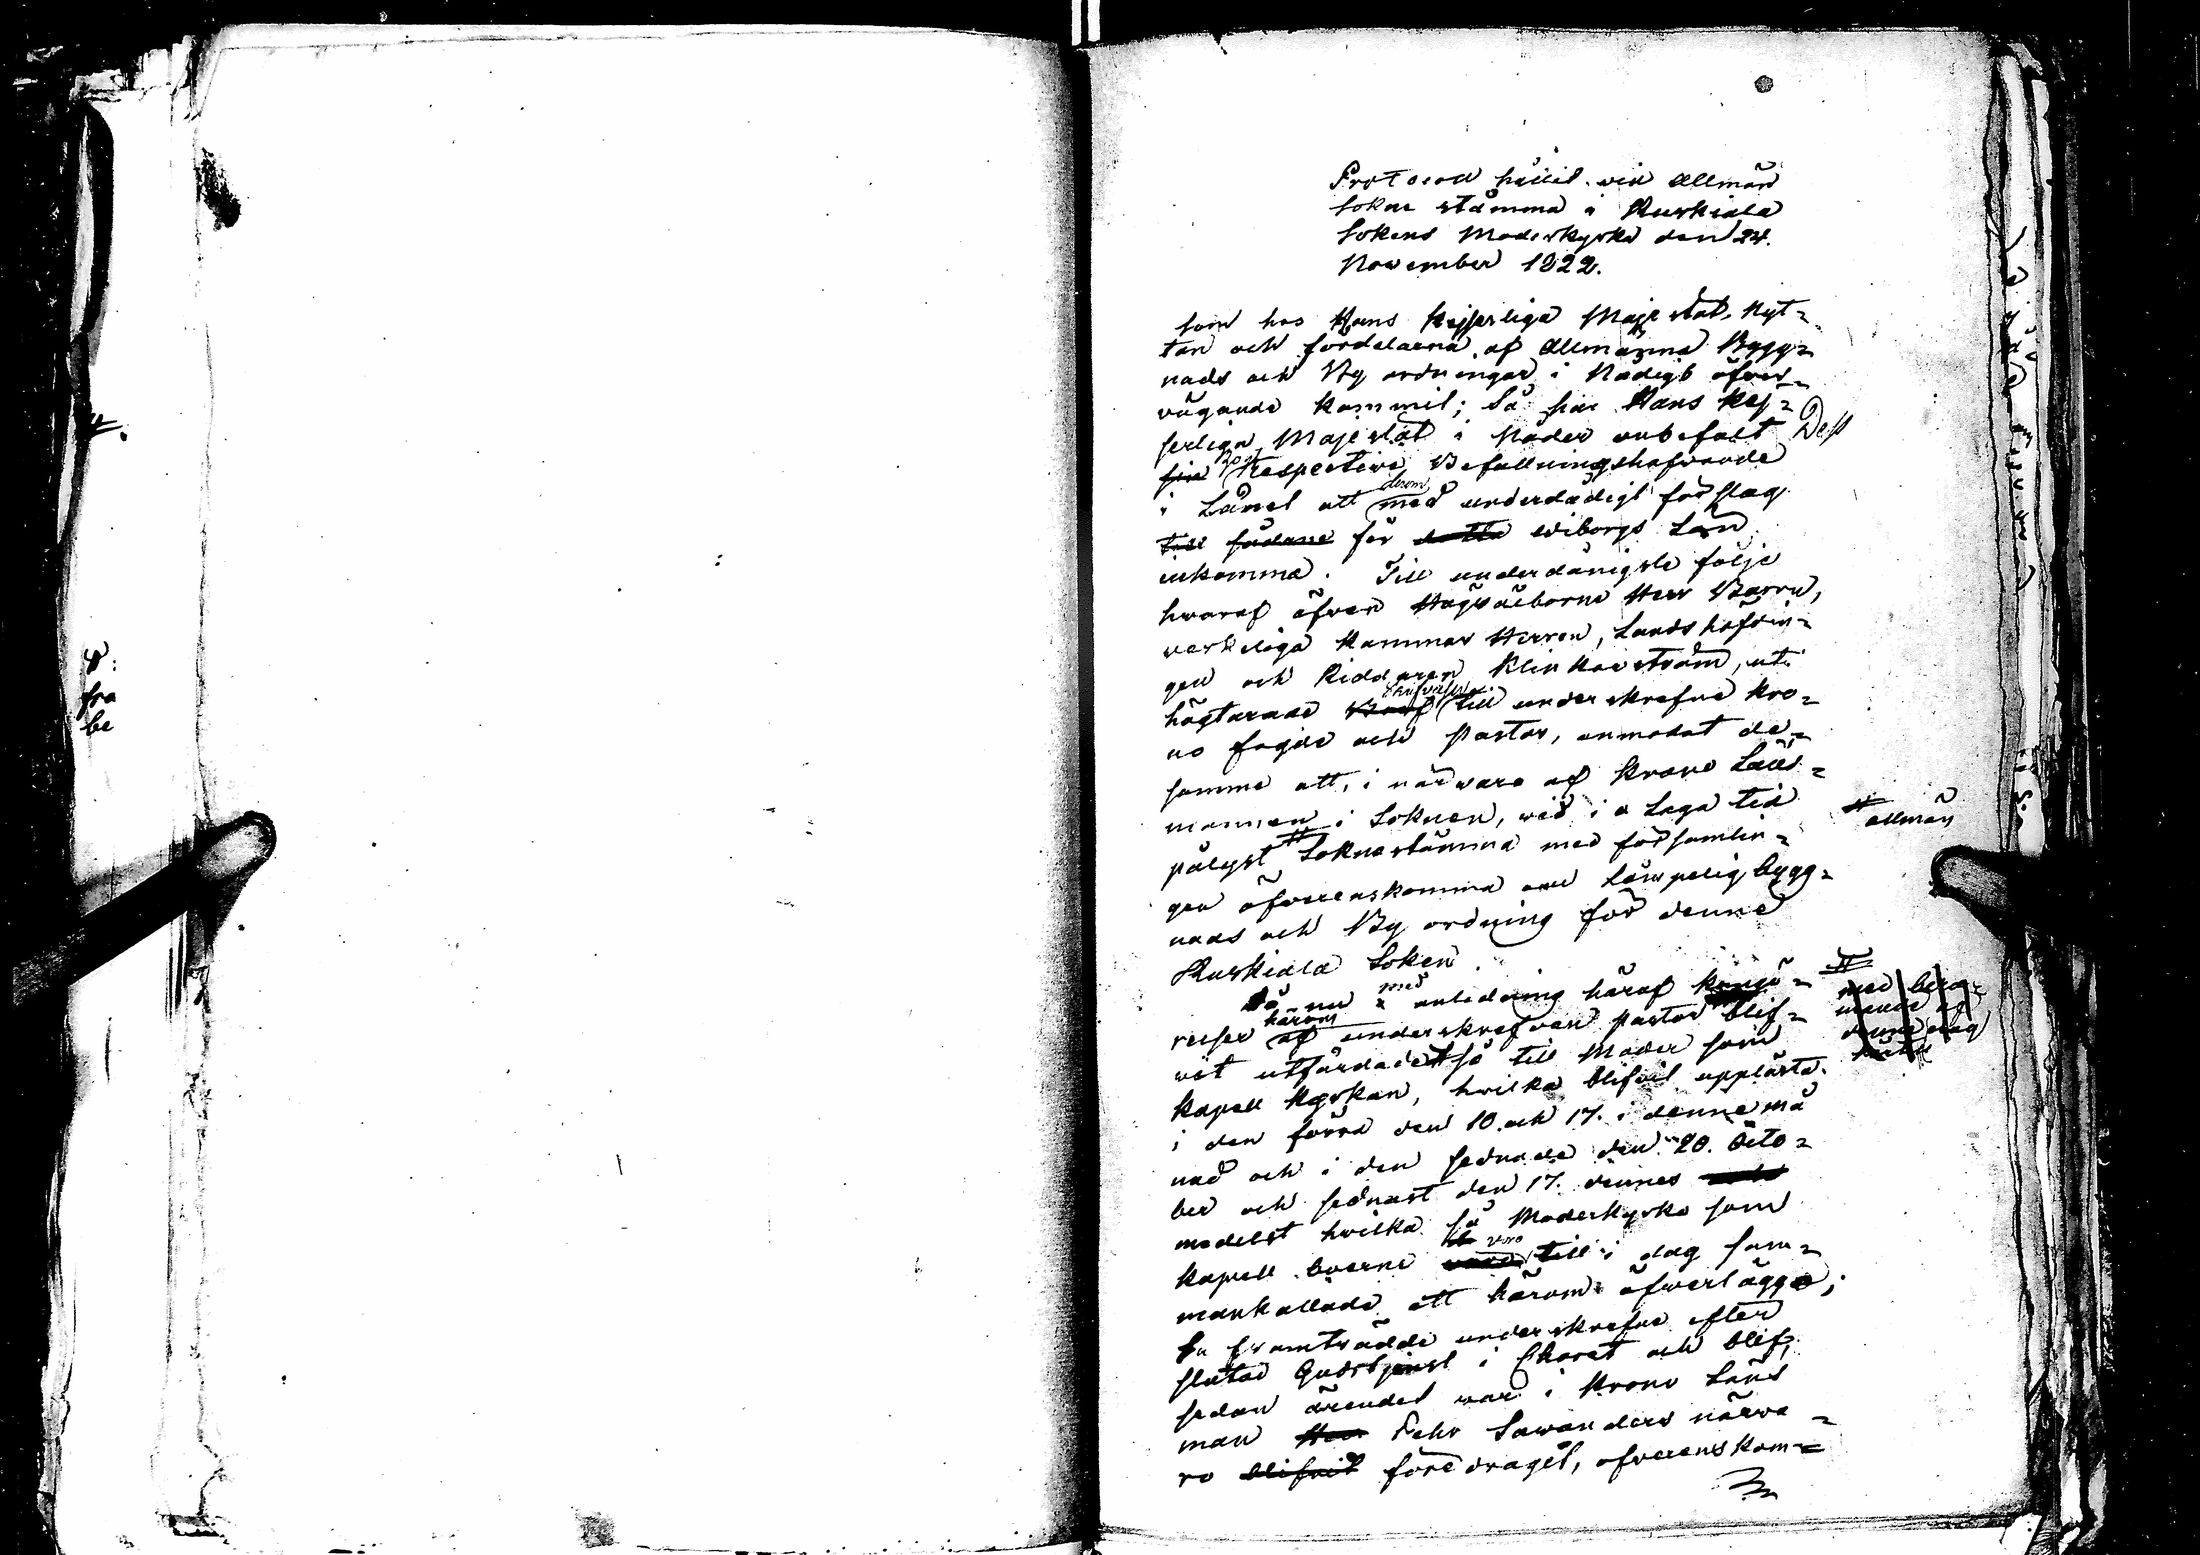 Protocoll hållit vid Allmän
Sokne stämma i Ruskiala
Sokens Moderkyrka den 24.
November 1822.
Som hos Hans Kejserliga Majestät, Nyt-
tan och fördelarna af Allmänna Bygg-
nads och By ordningar i Nådigt öfver-
vägande kommit; Så har Hans Kej-
serliga Majestät i Nåder anbefalt Dess
sin Respective Befallningshafvande
i Länet att derom med underdådigt förslag
till sådane för detta Wiborgs Län
inkomma. Till underdånigste följe
hvaraf äfven Högvälborne Herr Baron,
verkeliga Kammar Herren, Landshöfdin-
gen och Riddaren Klinkowström, uti
högtärade Bref Skrifvelse till underskrefne Kro-
no fogde och Pastor, anmodat de-
samme att, i närvaro af Krono Läns-
mannen i Soknen, vid i a Laga tid
pålyst # Soknestämma med församlin-
# allmän
gen öfverenskomma om Lämpelig bygg-
nads och By ordning för denne
Ruskiala Soken.
Så nu med anledning häraf kungö-
relser härom af underskrefven Pastor blif-
vit utfärdade så till Moder som
med
denne dag
Kapell Kyrkan, hvilka blifvit upplästa
i den förra den 10. och 17. i denne må
nad och i den sednade den 20. Octo-
ber och sednast den 17. dennes
medelst hvilka så Moderkyrko som
Kapell boerne voro till i dag sam-
mankallade att härom öfverlägga;
Så framträdde underskrefne efter
slutad Gudstjenst i Choret och blef,
sedan ärendet var i Krono Läns
man Herr Pehr Lavanders närva-
ro blifvit föredraget, öfverenskom-